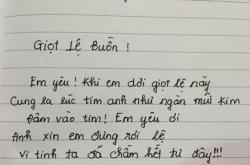 Giọt Lệ Buồn !
Em yêu ! Khi em dơi giọt lệ này
Cung la lúc tim anh như ngàn mũi kim
Đâm vào tim! Em yêu ơi
Anh xin em đưng rơi lệ
Vì tình ta đã chấm hết từ đây!!!